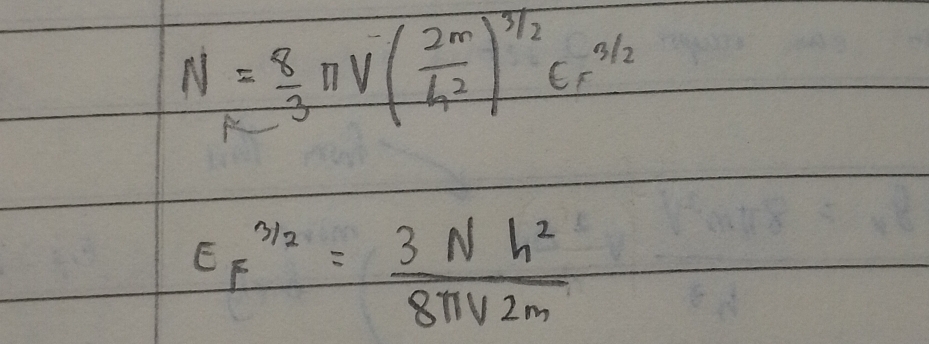 N = 8/3 π V (2m/h²)^3/2 ϵF^3/2
ϵF^3/2 = 3 N h² / 8πV 2m